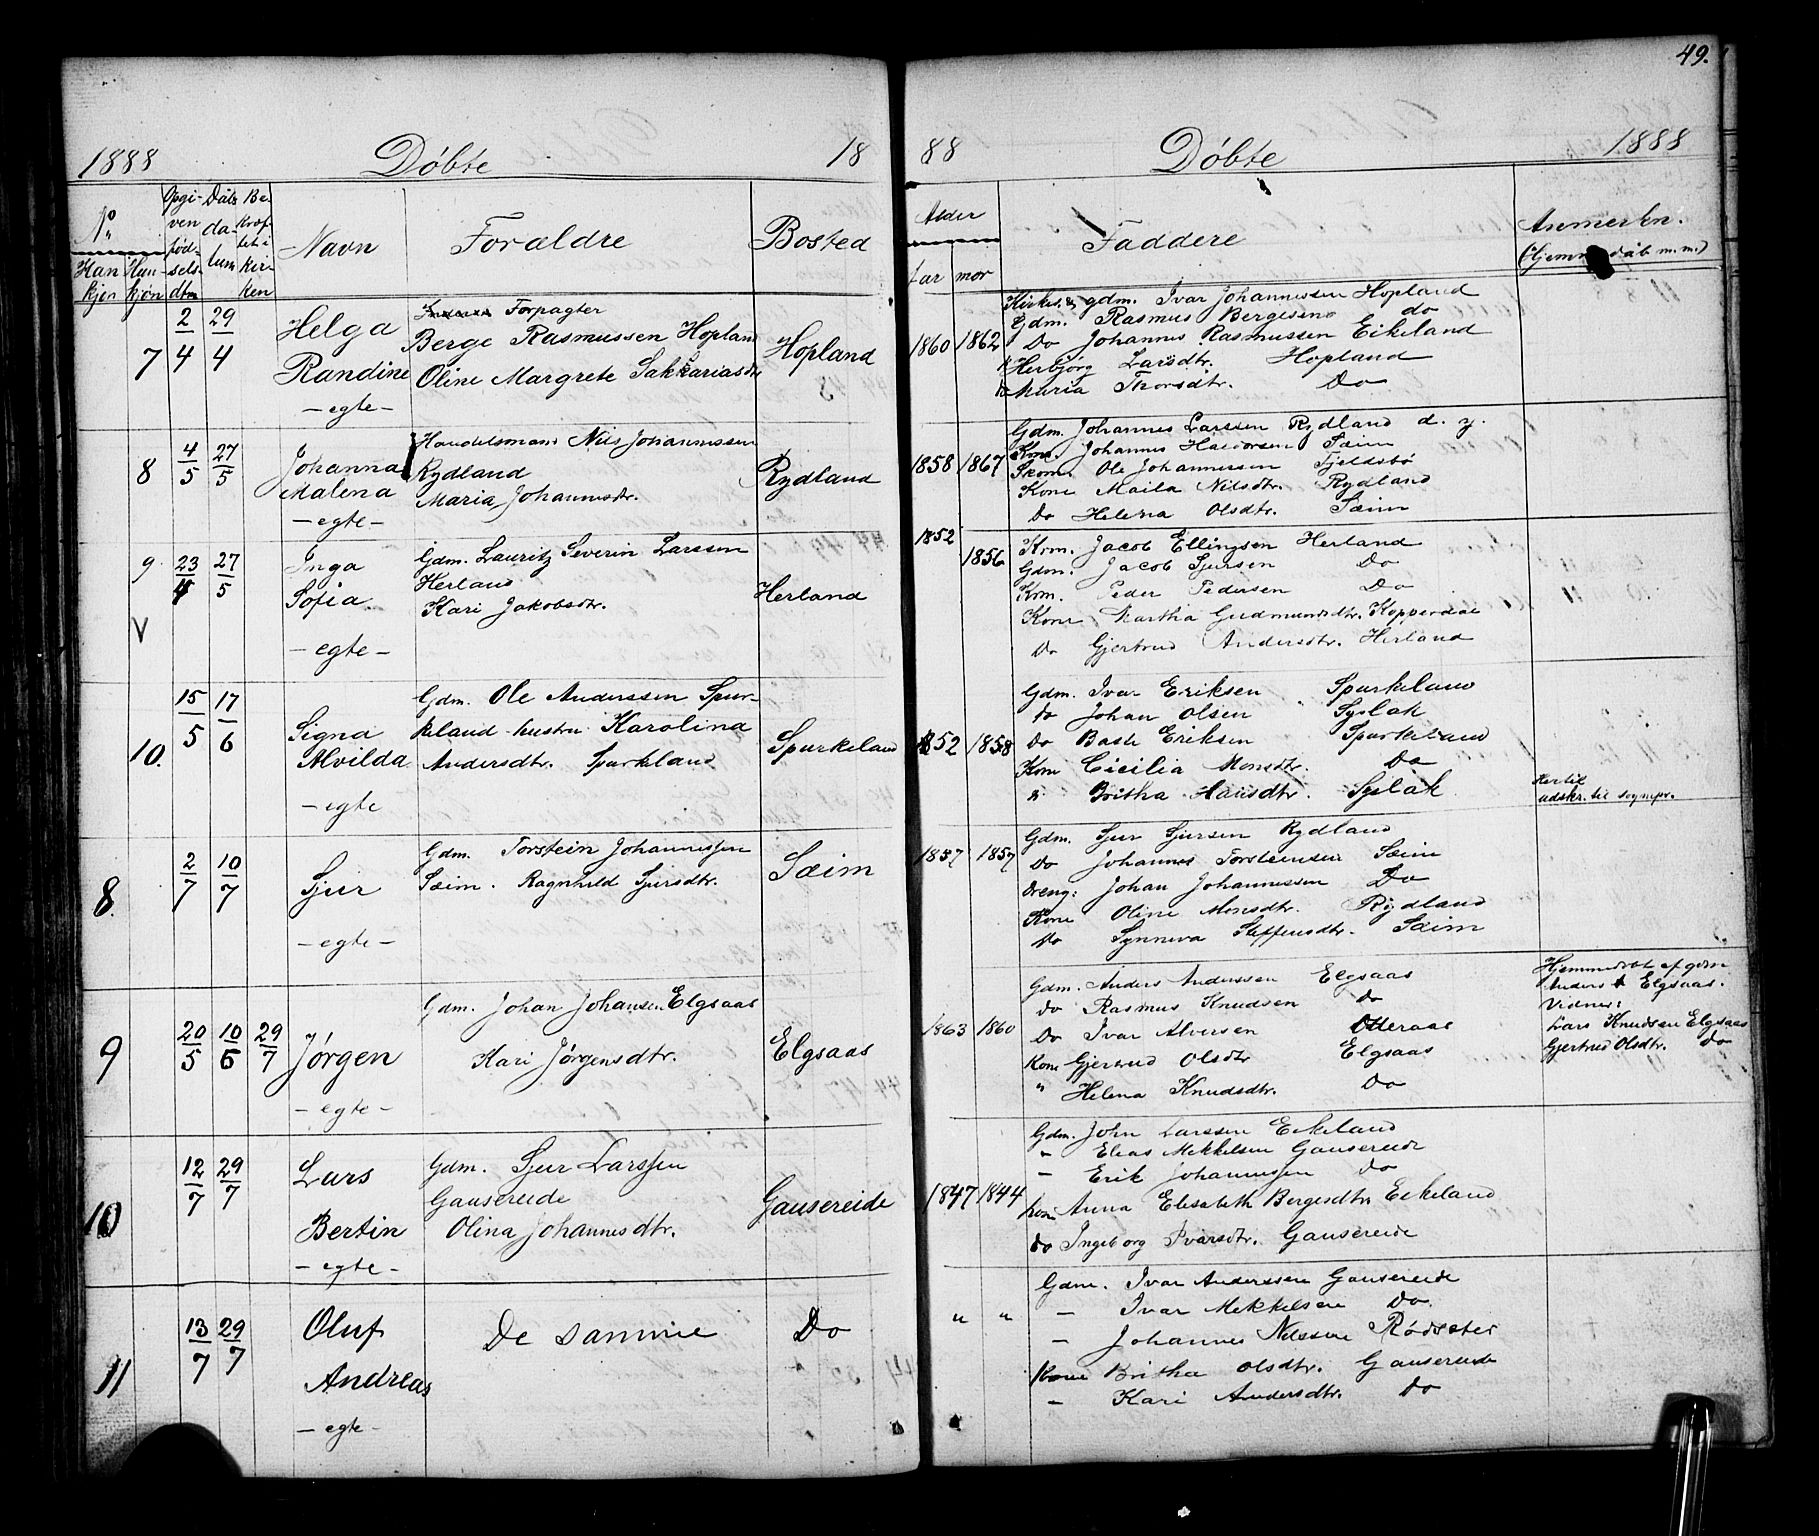 49.
1888 Döbte 18 88 Döbte 1888
No Opgi- Daabs Be-
ven da- kræf-
föd- tum tet i
sels- kir-
dtm ken
Han Hun-
kjön kjön
Navn Forældre Bosted
Alder
far mor
Faddere
Anmerkn.
(Hjemmedåb m.m.)
7 2/4 29/4
Helga
Randine
- egte -
Forpagter
Berge Rasmussen Hopland
Oline Margrete Sakkariasdtr
Hopland
1860 1862
Kirkes. & gdm. Ivar Johannessen Hopland
Gdm. Rasmus Bergesen do
Do Johannes Rasmussen Eikeland
K Herbjörg Larsdtr. Hopland
Do Maria Thorsdtr. Do
8 4/5 27/5
Johanna
Malena
- egte -
Handelsmand Nils Johannessen
Rydland
Maria Johannesdtr.
Rydland
1858 1867
Gdm. Johannes Larssen Rydland d. y.
Johannes Haldorsen Sæim
Skom. Ole Johannessen Fjeldsbö
Kone Maila Nilsdtr. Rydland
Do Helena Olsdtr. Sæim
9 23/4 27/5
V
Inga
Sofia
- egte -
Gdm. Lauritz Severin Larssen
Herland
Kari Jakobsdtr.
Herland
1852 1856
Krm. Jacob Ellingsen Herland
Gdm. Jacob Sjursen Do
Krm. Peder Pedersen Do
Kone Martha Gudmundsdtr. Kopperdal
Do Gjertrud Andersdtr. Herland
10. 15/5 17/6
Signa
Alvilda
- egte
Gdm. Ole Anderssen Spur-
keland hustru Karolina
Andersdtr. Spurkeland
Spurkeland
1852 1858
Gdm. Ivar Eriksen Spurkeland
do Johan Olsen Syslak
Do Basti Eriksen Spurkeland
Kone Cicilia Monsdtr. Do
" Britha Hansdtr. Syslak
Hertil
udskr. til sognepr.
8. 2/7 10/7
Sjur
- egte -
Gdm. Torstein Johannessen
Sæim. Ragnhild Sjursdtr.
Sæim
1857 1857
Gdm. Sjur Sjursen Rydland
Do Johannes Torsteinsen Sæim
Dreng: Johan Johannessen Do
Kone Oline Monsdtr. Rydland
Do Synneva Steffensdtr. Sæim
9 20/5 10/6 29/7
Jørgen
- egte -
Gdm. Johan Johansen Elgsaas
Kari Jørgensdtr.
Elgsaas
1863 1860
Gdm. Anders Anderssen Elgsaas
do Rasmus Knudsen do
Do Ivar Alversen Otteraas
Kone Gjertrud Olsdtr Elgsaas
" Helena Knudsdtr. Do
Hjemmedöbt af gdm
Anders A Elgsaas.
Vidner:
Lars Knudsen Elgsaas
Gjertrud Olsdtr. Do
10 12/7 29/7
Lars
Bertin
- egte -
Gdm. Sjur Larssen
Gausereide
Olina Johannesdtr.
Gausereide
1847 1844
Gdm. John Larssen Eikeland
" Elias Mekkelsen Gausereide
- Erik Johannessen do
kone Anna Elisabeth Bergesdtr Eikeland
do Ingeborg Ivarsdtr. Gausereide
11 13/7 29/7
Oluf
Andreas
- egte -
De samme
Do
" "
Gdm. Ivar Anderssen Gausereide
- Ivar Mekkelsen Do.
- Johannes Nilssen Rödseter
Kone Britha Olsdtr. Gausereide
- Kari Andersdtr. Do